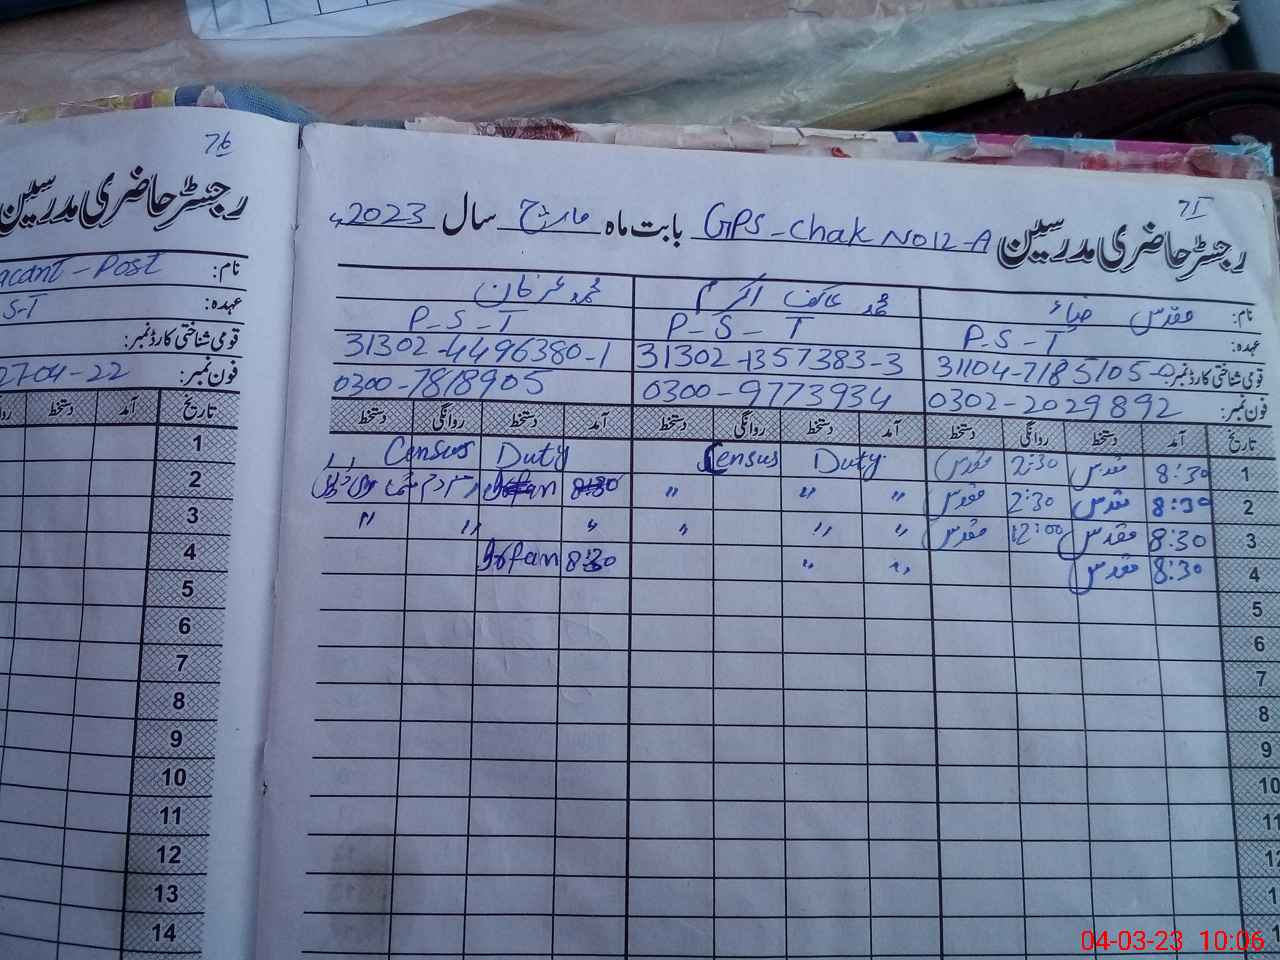 76
رجسٹر حاضری مدرسین
acant - Post
نام:
S-T
عہدہ:
قومی شناختی کارڈ نمبر:
2704-22
فون نمبر:
تاریخ آمد دستخط
1
2
3
4
5
6
7
8
9
10
11
12
13
14
رجسٹر حاضری مدرسین GPS - Chak No 12-A بابت ماہ مارچ سال 2023ء
نام: مقدس ضیاء محمد عاکف اکرم محمد عرفان
عہدہ: P-S-T P-S-T P-S-T
قومی شناختی کارڈ نمبر: 31104-7185105-0 31302-1357383-3 31302-4496380-1
فون نمبر: 0302-2029892 0300-9773934 0300-7818905
تاریخ آمد دستخط روانگی دستخط آمد دستخط روانگی دستخط آمد دستخط روانگی دستخط
1 8:30 مقدس 2:30 مقدس Census Duty Census Duty
2 8:30 مقدس 2:30 مقدس " " " 8:30 Irfan
3 8:30 مقدس 12:00 مقدس " " " " " "
4 8:30 مقدس " " 8:30 Irfan
5
6
7
8
9
10
11
04-03-23 10:06